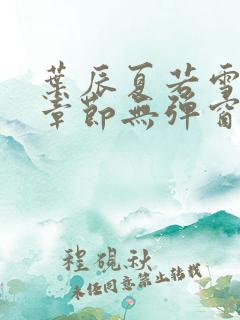 葉辰夏若雪
章節無彈窗
程硯秋
未經同意禁止轉載